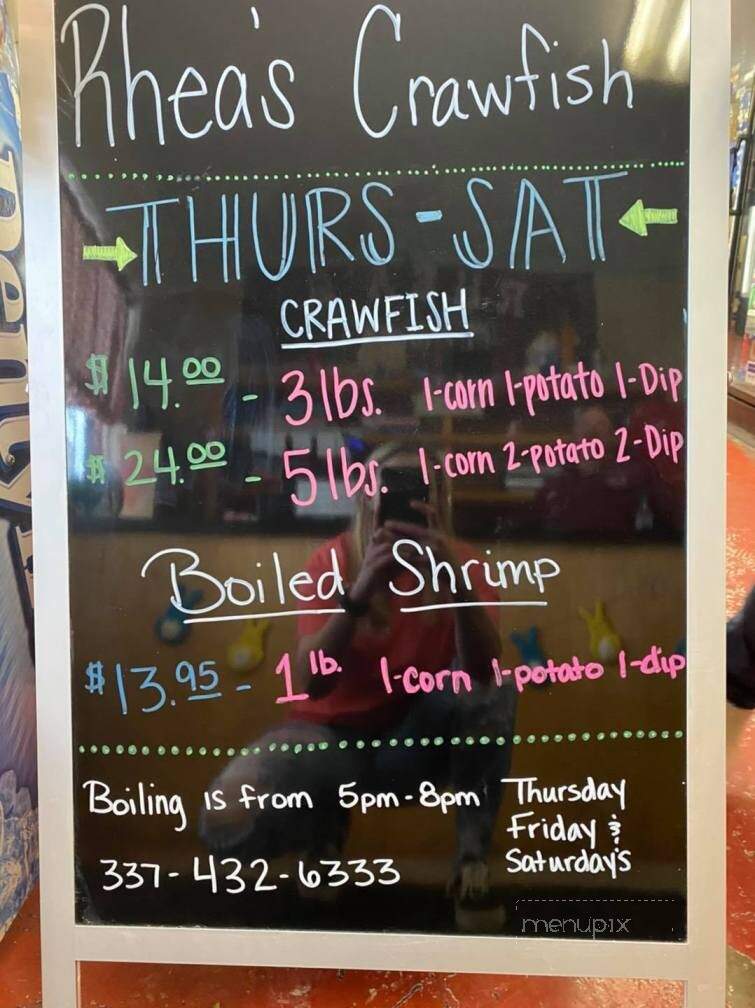 Rhea's Crawfish
THURS-SAT
CRAWFISH
$14.00 - 3 lbs. 1-corn 1-potato 1-Dip
$24.00 - 5 lbs. 1-corn 2-potato 2-Dip
Boiled Shrimp
$13.95 - 1 lb. 1-corn 1-potato 1-dip
Boiling is from 5pm-8pm Thursday
Friday &
Saturday's
337-432-6333
menupix